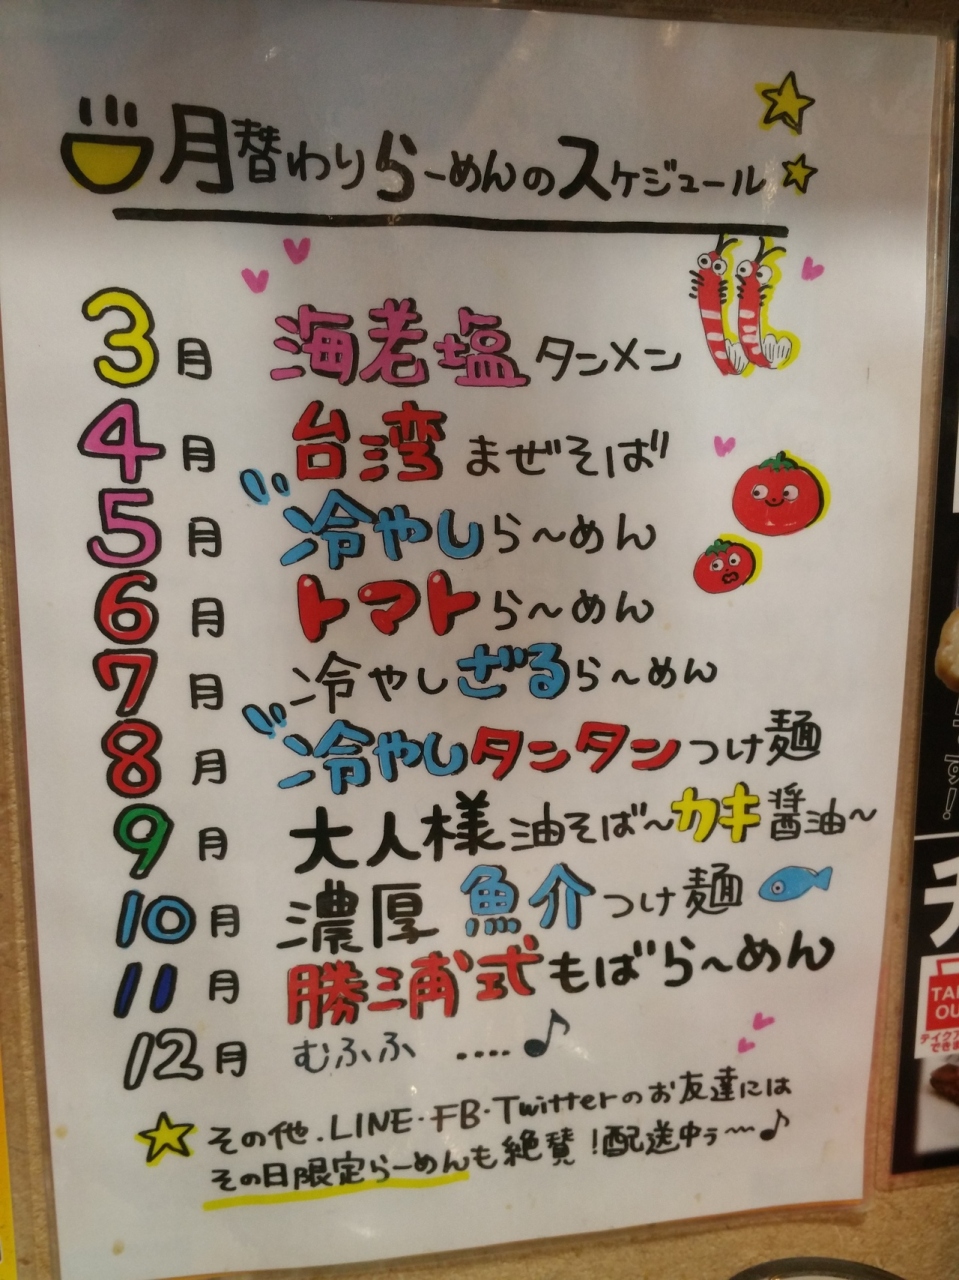 月替わりらーめんのスケジュール
3月 海老塩タンメン
4月 台湾まぜそば
5月 冷やしら〜めん
6月 トマトら〜めん
7月 冷やしざるら〜めん
8月 冷やしタンタンつけ麺
9月 大人様油そば〜カキ醤油〜
10月 濃厚魚介つけ麺
11月 勝浦式もばら〜めん
12月 むふふ ....♪
その他.LINE・FB・Twitterのお友達には
その日限定らーめんも絶賛!配送中ぅ〜♪
TA
OU
テイクア
できま